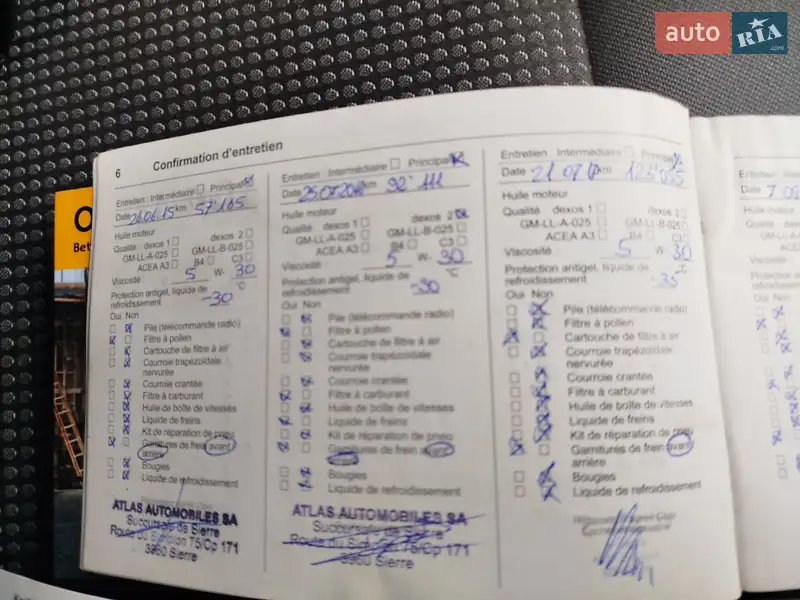 auto RIA .com
6 Confirmation d'entretien
Entretien: Intermédiaire Principal
Date 26.06.15 km 57'165
Huile moteur
Qualité dexos 1 dexos 2
GM-LL-A-025 GM-LL-B-025
ACEA A3 B4 C3
Viscosité 5 W- 30
Protection antigel, liquide de
refroidissement -30 °C
Oui Non
Pile (télécommande radio)
Filtre à pollen
Cartouche de filtre à air
Courroie trapézoïdale
nervurée
Courroie crantée
Filtre à carburant
Huile de boîte de vitesses
Liquide de freins
Kit de réparation de pneu
Garnitures de frein avant
arrière
Bougies
Liquide de refroidissement
ATLAS AUTOMOBILES SA
Succursale de Sierre
Route du 75/Cp 171
3960 Sierre
Entretien: Intermédiaire Principal
Date 25.07. km 92'111
Huile moteur
Qualité dexos 1 dexos 2
GM-LL-A-025 GM-LL-B-025
ACEA A3 B4 C3
Viscosité 5 W- 30
Protection antigel, liquide de
refroidissement -30 °C
Oui Non
Pile (télécommande radio)
Filtre à pollen
Cartouche de filtre à air
Courroie trapézoïdale
nervurée
Courroie crantée
Filtre à carburant
Huile de boîte de vitesses
Liquide de freins
Kit de réparation de pneu
Garnitures de frein avant
Bougies
Liquide de refroidissement
ATLAS AUTOMOBILES SA
Succursale de Sierre
Route du 75/Cp 171
3960 Sierre
Entretien: Intermédiaire Principal
Date 21 07 km
Huile moteur
Qualité dexos 1 dexos 2
GM-LL-A-025 GM-LL-B-025
ACEA A3 B4 C3
Viscosité 5 W- 30
Protection antigel, liquide de
refroidissement -35 °C
Oui Non
Pile (télécommande radio)
Filtre à pollen
Cartouche de filtre à air
Courroie trapézoïdale
nervurée
Courroie crantée
Filtre à carburant
Huile de boîte de vitesses
Liquide de freins
Kit de réparation de pneu
Garnitures de frein avant
arrière
Bougies
Liquide de refroidissement